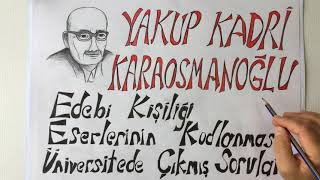 YAKUP KADRİ
KARAOSMANOĞLU
Edebi Kişiliği
Eserlerinin Kodlanması
Üniversitede Çıkmış Sorular